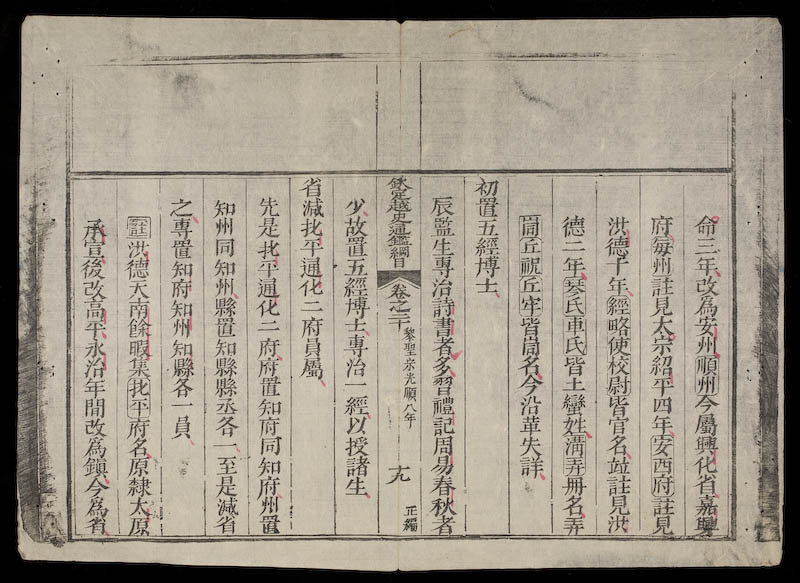 命三年改爲安州順州今屬興化省嘉興
府每州註見太宗紹平四年安西府註見
洪德十年經略使校尉皆官名竝註見洪
德二年琴氏車氏皆土蠻姓溝弄册名弄
崗丘祝丘牢皆崗名今沿革失詳
初置五經博士
辰監生專治詩書者多習禮記周易春秋者
欽定越史通鑑綱目 卷之二十 黎聖宗光順八年 十九 正編
少故置五經博士專治一經以授諸生
省減北平通化二府員屬
先是北平通化二府府置知府同知府州置
知州同知州縣置知縣縣丞各一至是減省
之專置知府知州知縣各一員
註洪德天南餘暇集北平府名原隸太原
承宣後改高平永治年間改爲鎮今爲省